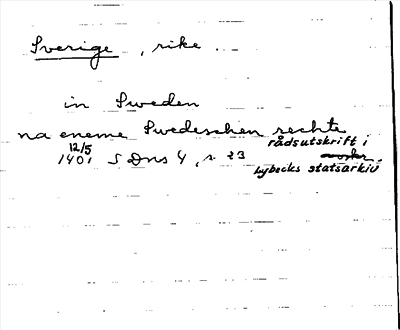 Sverige, rike
in Sweden
na eneme Swedeschen rechte
12/5 rådsutskrift i
1401 SDns 4, s. 23
Lybecks statsarkiv